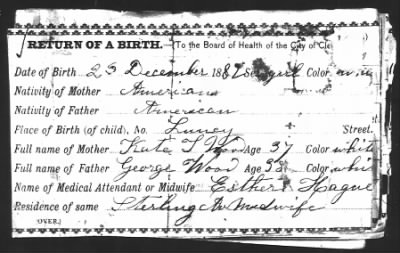 RETURN OF A BIRTH. To the Board of Health of the City of Cle
Date of Birth 23 December 1887 Sex girl Color
Nativity of Mother American
Nativity of Father American
Place of Birth (of child), No. Street.
Full name of Mother Kate Wood Age 37 Color white
Full name of Father George Wood Age Color whi
Name of Medical Attendant or Midwife Esther Hague
Residence of same Sterling Av Midwife
[OVER.]